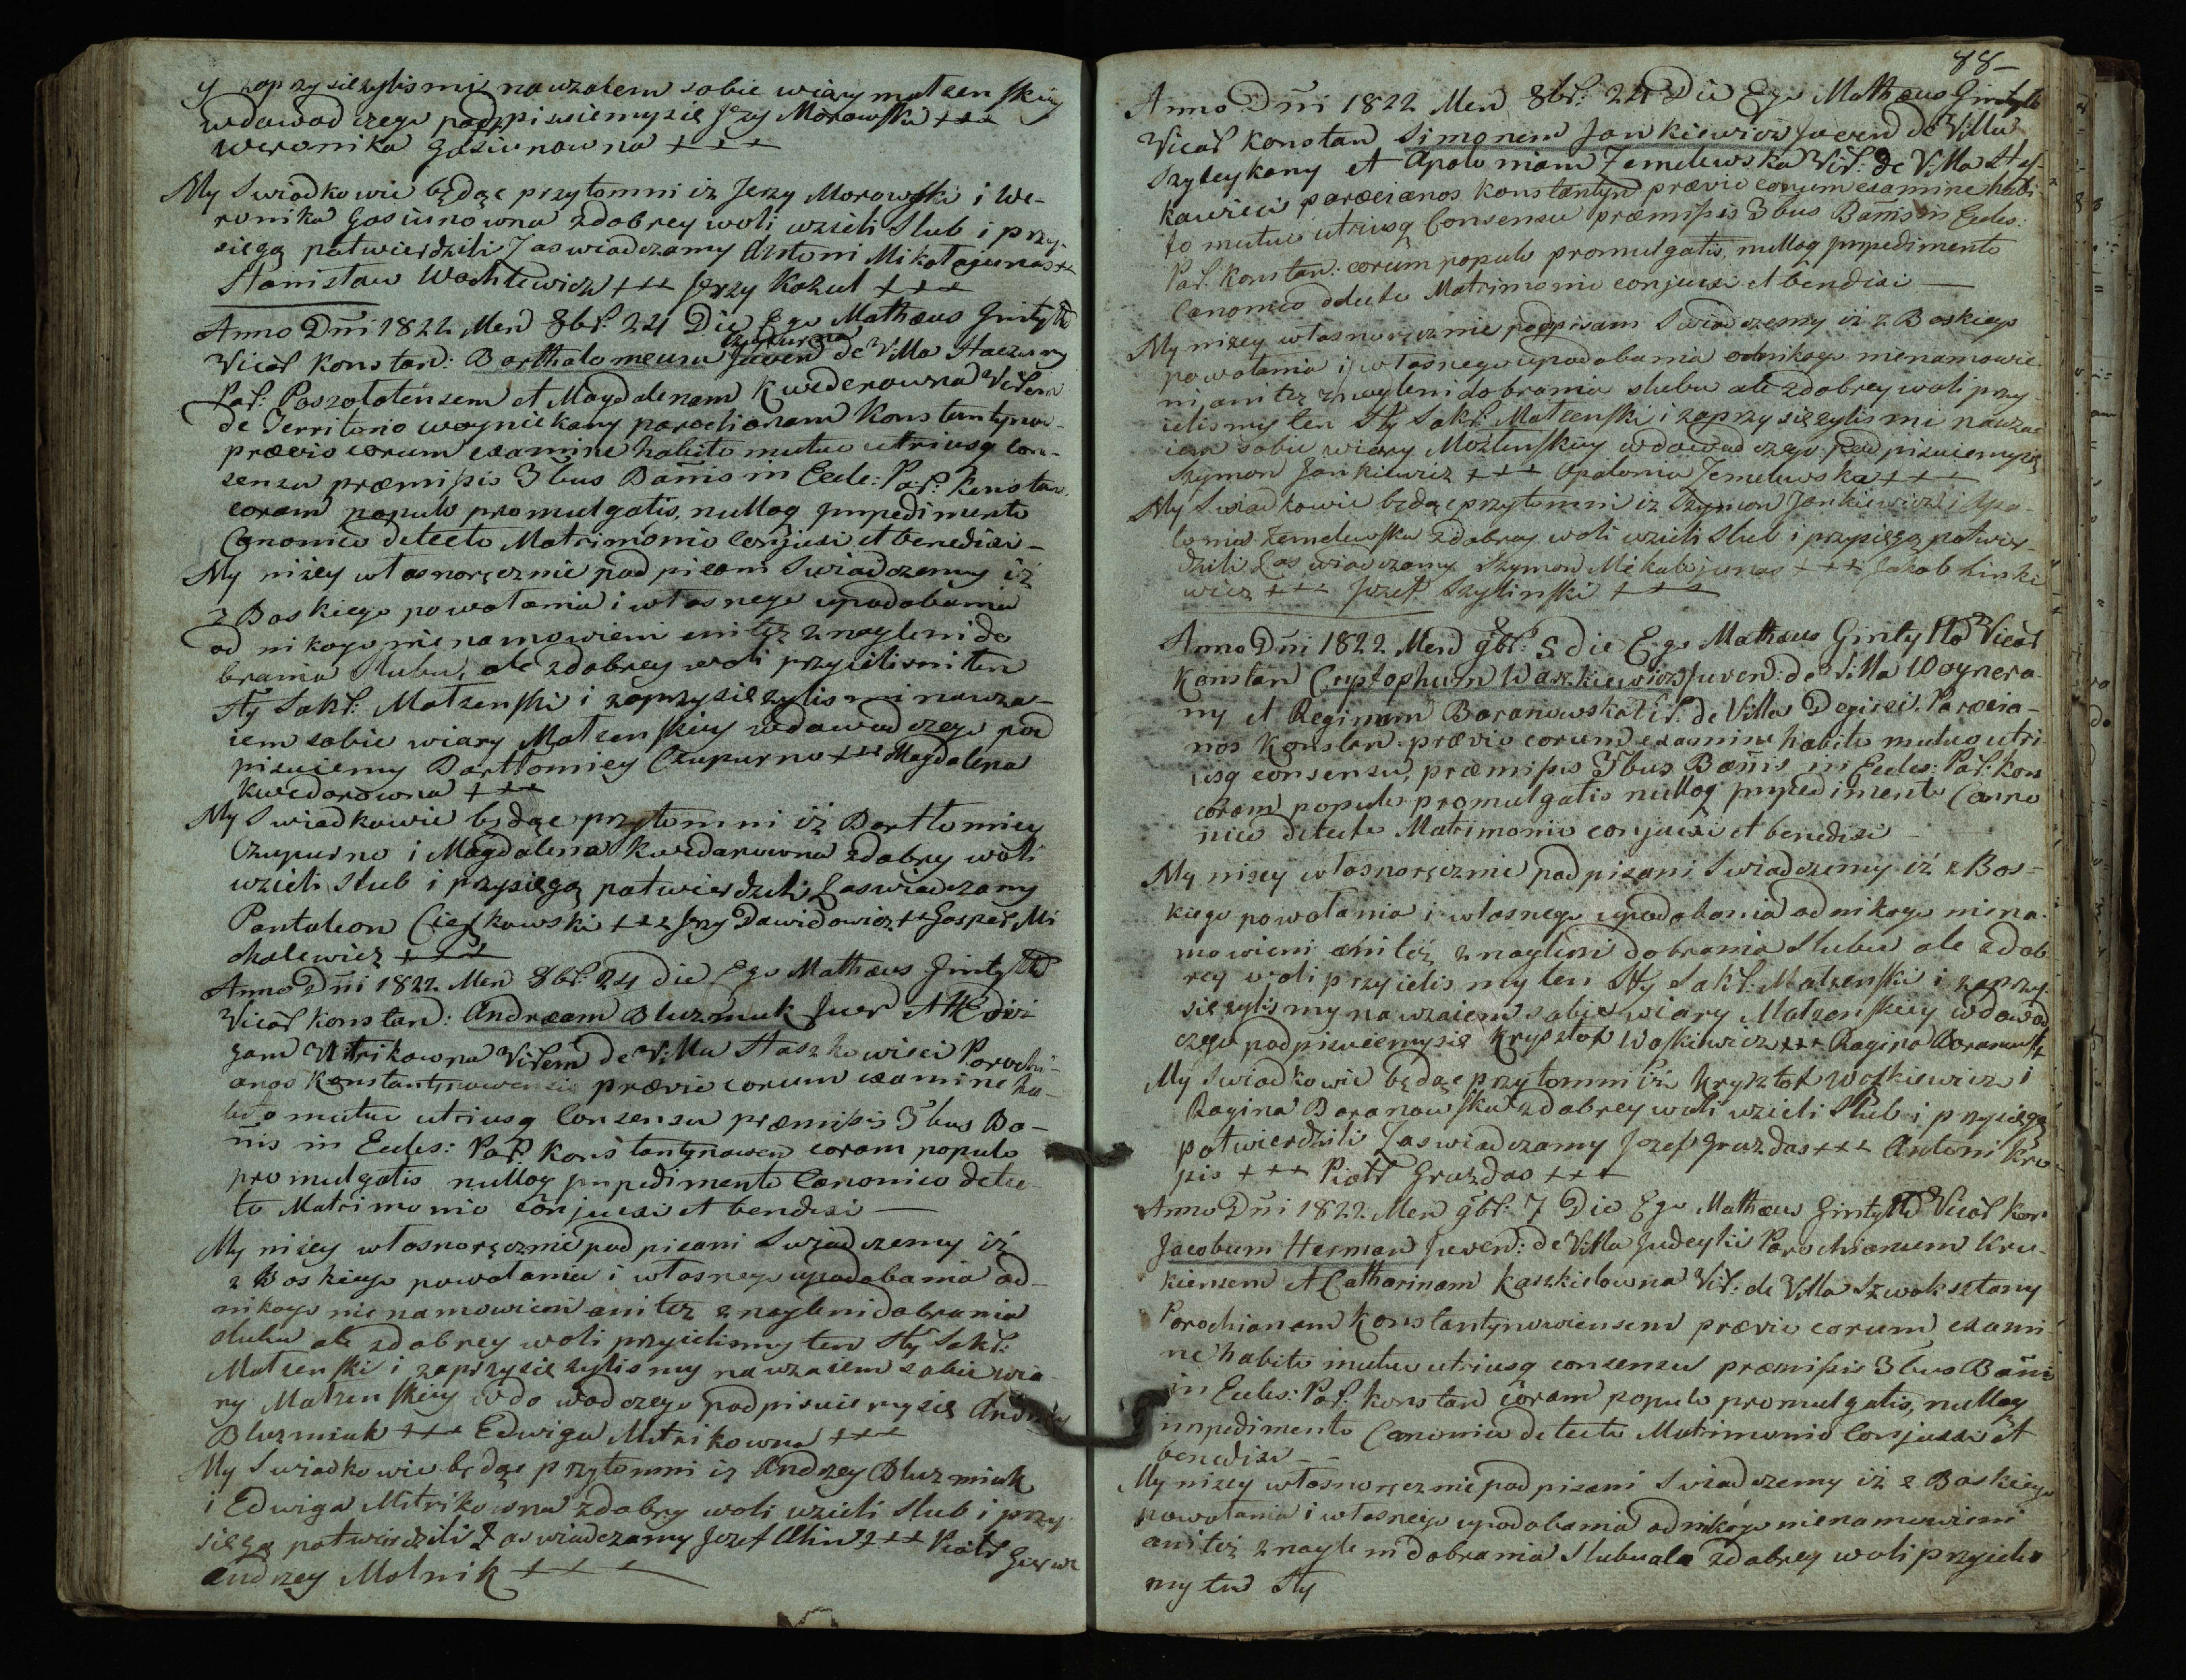 y zaprzysięzylismi nawzaiem sobie wiary małzenskiey
wdowod czego podpisuiemysię Jerzy Morowski +++
Weronika Gasiunowna +++
My Swiadkowie będąc przytomni iz Jerzy Morowski i We-
ronika Gasiunowna zdobrey woli wzieli Slub i przy-
sięgą potwierdzili Zaswiadczamy Antoni Mikołajunas ++
Stanisław Wochtewicz +++ Jerzy Kozul +++
Anno Dñi 1822 Men 8br: 24 Die Ego Mathæus Gintyłło
Czupurna
Vicar Konstan: Barthalomeum Juven de Villa
Par: Poszołatensem et Magdalenam Kwederowna Virlem
de Territorio woyniekany parochianam Konstantynow-
prævio eorum examine habito mutuo utriusq con-
sensu præmissis 3bus Bannis in Eccle: Par: Konstan
coram populo promulgatis, nulloq Jmpedimento
Canonico detecto Matrimonio Conjunxi et benedixi –
My nizey własnoręcznie podpisani Swiadczemy iż
z Boskiego powołania i własnego upodobania
od nikogo nie namowieni ani też znagleni do
brania Slubu, ale zdobrey woli przyielismi ten
Sty Sakr: Małzenski i zaprzysięzylismi nawza-
iem sobie wiary Małzenskiey wdowod czego pod
pisuiemy Bartłomiey Czupurno +++ Magdalena
Kwedorowna +++
My Swiadkowie będąc przytomni iż Bartłomiey
Czupurno i Magdalena Kwedarowna zdobry woli
wzieli Slub i przysięgą potwierdzili, Zaswiadczamy
Pantaleon Cieszkowski +++ Jerzy Dawidowicz ++ Gasper Mi
chalewicz +++
Anno Dñi 1822 Men 8br: 24 Die Ego Mathæus Gintyłło
Vicar Konstan: Andræam Bluzmuk Juer Et Edwi
gam Mitrikowna Virlem de Villa Staszkowisci Parochi-
anos Konstantynowensis prævio eorum examine ha-
bito mutuo utriusq Consensu præmissis 3bus Ba-
ñis in Eccles: Par Konstantynowen coram populo
promulgatis nulloq jmpedimento Canonico dete-
to Matrimonio conjunxi et benedixi –
My nizey własnoręcznie podpisani Swiadczemy iż
z Boskiego powołania i własnego upodobania od-
nikogo nienamowieni ani też znagleni dobrania
slubu ale zdobrey woli przyielismy ten Sty Sakr:
Małzenski i zaprzysięzylismy nawzaiem sobie wia-
ry Małzenskiey wdowod czego podpisuiemysię Andrzey
Bluzmiuk +++ Edwiga Mitrikowna +++
My Swiadkowie będąc przytomni iz Andrzey Bluzmiuk
i Edwiga Mitrikowna zdobry woli wzieli Slub i przy-
sięgą potwierdzili Zaswiadczamy Jozef +++ Piotr
Andrzey Molnik +++
88–
Anno Dñi 1822 Men 8br: 24 Die Ego Mathæus Gintyłło
Vicar Konstan Simonem Jankiewicz Juven de Villa
Szyleykany et Apoloniam Zemelewska Vir: de Villa
parœcianos Konstantyn prævio eorum examine habi-
to mutuo utriusq Consensu præmissis 3bus Bannis in Eccles:
Par. Konstan: coram populo promulgatis, nulloq jmpedimento
Canonico detecto Matrimonio conjunxi et bendixi –
My nizey własnoręcznie podpisani Swiadczemy iż z Boskiego
powołania i własnego upodobania odnikogo nienamowie-
ni, ani też znagleni dobrania slubu ale zdobrey woli przy-
ielismy ten Sty Sakr. Małzenski i zaprzysięzylismi nawza
iem sobie wiary Możenskiey wdowod czego podpisuiemysię
Szymon Jankiewicz +++ Apolonia Zemelewska +++
My Swiadkowie będąc przytomni iz Szymon Jankiewicz i Apo-
lonia Zemelewska zdobrey woli wzieli Slub i przysięgą potwier-
dzili Zaswiadczamy Szymon Mikołajunas +++ Jakob Linke
wicz +++ Jozef Szylinski +++
Anno Dñi 1822 Men 9br: 5 die Ego Mathæus Gintyłło Vicar
Konstan Cryptophum Waszkiewicz Juven: de Villa Woynera-
ny et Reginam Boranowska Vir: de Villa Degisci Parœcia-
nos Konstan prævio eorum examine habito mutuo utri
usq consensu, præmissis 3bus Bannis in Eccles: Par: Kon
coram populo promulgatis nulloq jmpedimento Cano
nico detecto Matrimonio conjunxi et benedixi –
My nizey własnoręcznie podpisani Swiadczemy iż z Bos-
kiego powołania i własnego upodobania odnikogo niena-
mowieni ani też znagleni dobrania Slubu ale zdob
rey woli przyielismy ten Sty Sakr: Małzenski i zaprzy-
sięzylismy nawzaiem sobie wiary Małzenskiey wdowod
czego podpisuiemysię Krysztof Woskiewicz +++ Ragina Boranowsk
My Swiadkowie będąc przytomni iż Krysztof Woskiewicz i
Ragina Boranowska zdobrey woli wzieli Slub i przysięgą
potwierdzili Zaswiadczamy Jozef Gruzdas +++ Antoni Kro-
pis +++ Piotr Gruzdas +++
Anno Dñi 1822 Men 9br: 7 Die Ego Mathæus Gintyłło Vicar Kon
Jacobum Herman Juven: de Villa Judeykie Parochianum Kru-
kiensem et Catharinam Kaszkielowna Vir: de Villa Szwoksztany
Parochianam Konstantynowiensem prævio eorum exami-
ne habito mutuo utriusq consensu præmissis 3bus Bañi
in Eccles: Par. Konstan coram populo promulgatis, nulloq
impedimento Canonico detecto Matrimonio Conjunxi et
benedixi –
My nizey własnoręcznie podpisani Swiadczemy iż z Boskiego
powołania i własnego upodobania odnikogo nienamowieni
ani też znagleni dobrania Slubu ale zdobrey woli przyielis
my ten Sty